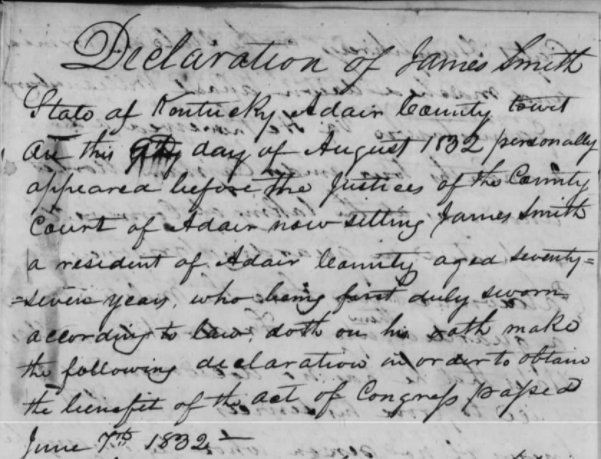 Declaration of James Smith
State of Kentucky Adair County Court
On this day of August 1832 personally
appeared before the Justices of the County
Court of Adair now sitting James Smith
a resident of Adair County aged seventy=
=seven years, who being first duly sworn
according to law, doth on his oath make
the following declaration in order to obtain
the benefit of the act of Congress passed
June 7th 1832 –